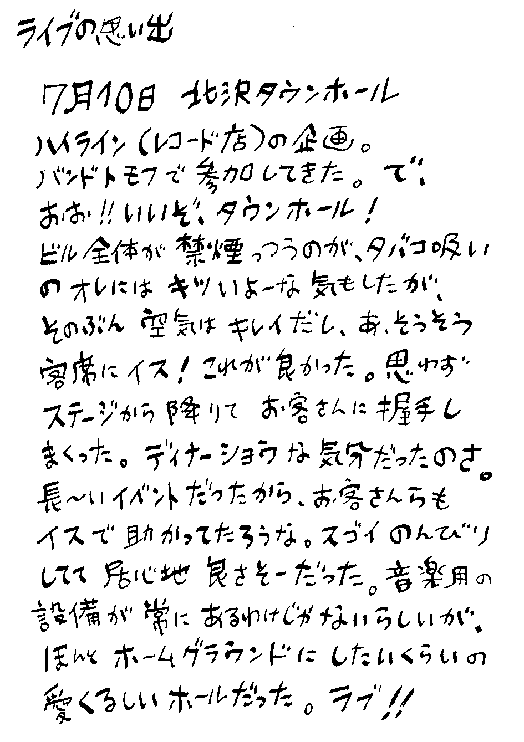 ライブの思い出
7月10日 北沢タウンホール
ハイライン(レコード店)の企画。
バンドトモフで参加してきた。で、
おお!!いいぞ、タウンホール!
ビル全体が禁煙っつうのが、タバコ吸い
のオレにはキツいよーな気もしたが、
そのぶん空気はキレイだし、あ、そうそう
客席にイス!これが良かった。思わず
ステージから降りてお客さんに握手し
まくった。ディナーショウな気分だったのさ。
長〜いイベントだったから、お客さんらも
イスで助かってたろうな。スゴイのんびり
してて居心地良さそーだった。音楽用の
設備が常にあるわけじゃないらしいが、
ほんとホームグラウンドにしたいくらいの
愛くるしいホールだった。ラブ!!